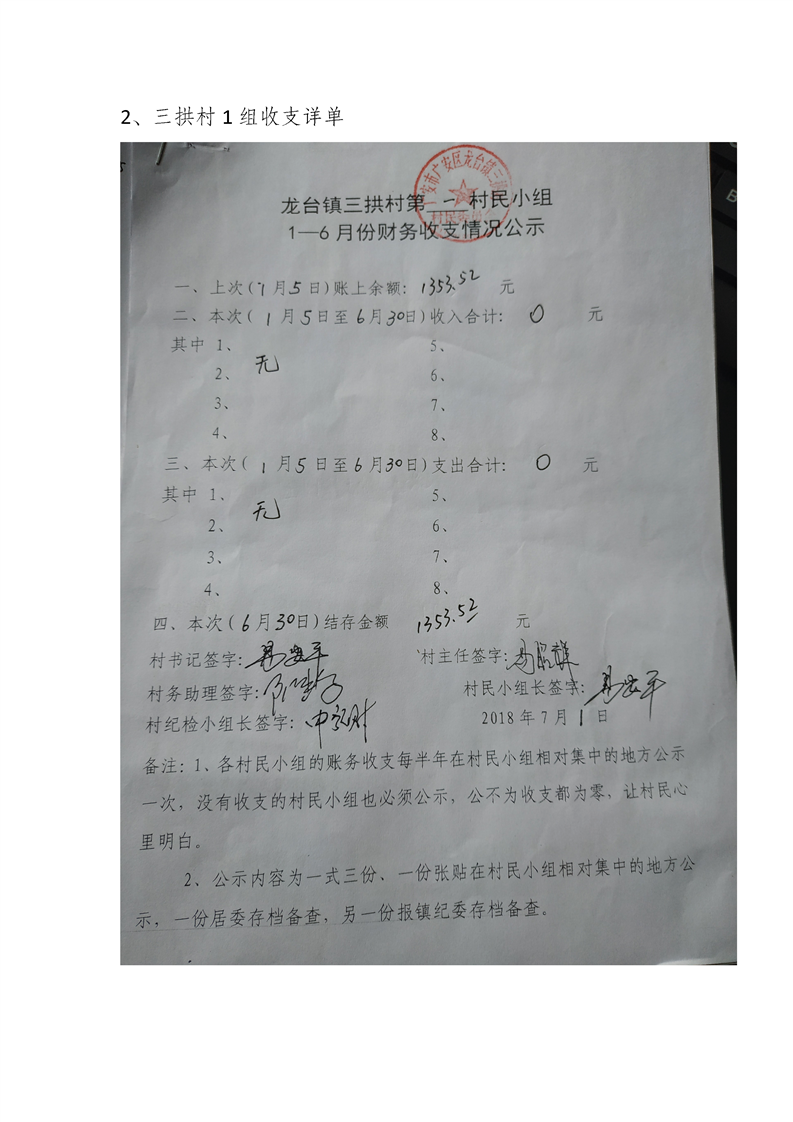 2、三拱村 1 组收支详单
龙台镇三拱村第 一 村民小组
1—6 月份财务收支情况公示
一、上次(1月5日)账上余额: 1353.52 元
二、本次( 1月5日至6月30日)收入合计: 0 元
其中 1、 5、
2、 无 6、
3、 7、
4、 8、
三、本次( 1月5日至6月30日)支出合计: 0 元
其中 1、 5、
2、 无 6、
3、 7、
4、 8、
四、本次(6月30日)结存金额 1353.52 元
村书记签字: 村主任签字:
村务助理签字: 村民小组长签字:
村纪检小组长签字: 2018年7月1日
备注:1、各村民小组的账务收支每半年在村民小组相对集中的地方公示
一次,没有收支的村民小组也必须公示,公不为收支都为零,让村民心
里明白。
2、公示内容为一式三份、一份张贴在村民小组相对集中的地方公
示,一份居委存档备查,另一份报镇纪委存档备查。